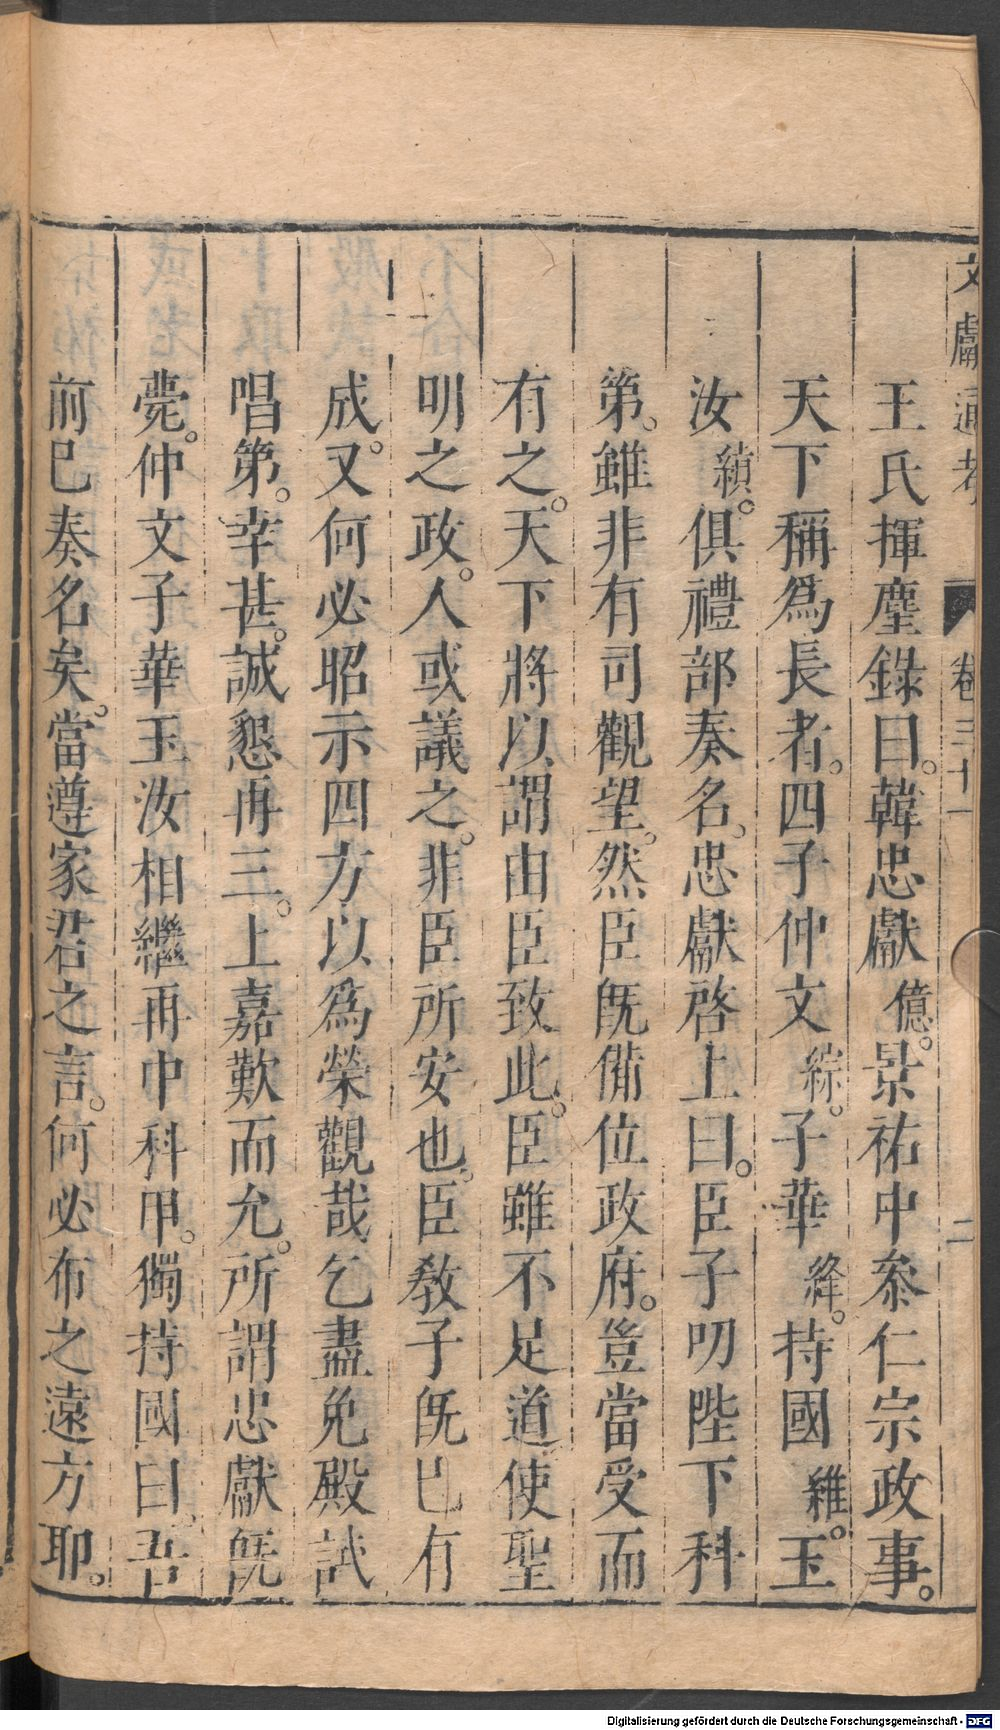 文獻通考 卷三十一 二
王氏揮塵錄曰。韓忠獻億。景祐中叅仁宗政事。
天下稱爲長者。四子仲文綜。子華絳。持國維。玉
汝縝。俱禮部奏名。忠獻啓上曰。臣子叨陛下科
第。雖非有司觀望。然臣旣備位政府。豈當受而
有之。天下將以謂由臣致此。臣雖不足道使聖
明之政。人或議之。非臣所安也。臣敎子旣已有
成。又何必昭示四方以爲榮觀哉乞盡免殿試
唱第。幸甚。誠懇再三。上嘉歎而允。所謂忠獻旣
薨。仲文子華玉汝相繼再中科甲。獨持國曰。吾
前已奏名矣。當遵家君之言。何必布之遠方耶。
Digitalisierung gefördert durch die Deutsche Forschungsgemeinschaft - DFG